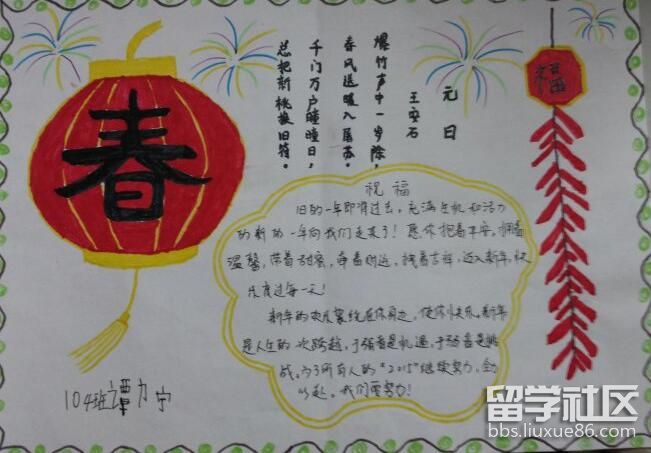 春
福
元日
王安石
爆竹声中一岁除，
春风送暖入屠苏。
千门万户曈曈日，
总把新桃换旧符。
祝福
旧的一年即将过去，充满生机和活力
的新的一年向我们走来了！愿你抱着平安，拥着
温馨，带着甜蜜，牵着财运，拽着吉祥，迈入新年，快
乐度过每一天！
新年的欢乐萦绕在你身边，使你快乐。新年
是人生的一次跨越，于强者是机遇，于弱者是挑
战。为了所有人的“2015”继续努力，全力
以赴。我们要努力！
104班谭力宁
留学社区
bbs.liuxue86.com